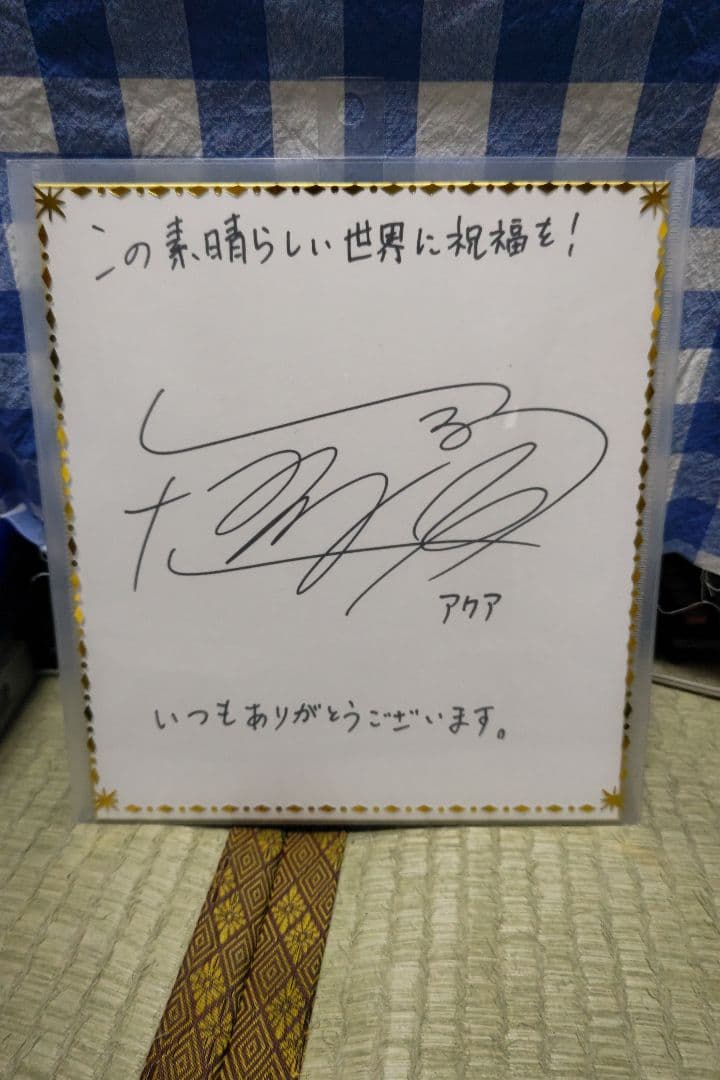 この素晴らしい世界に祝福を!
アクア
いつもありがとうございます。